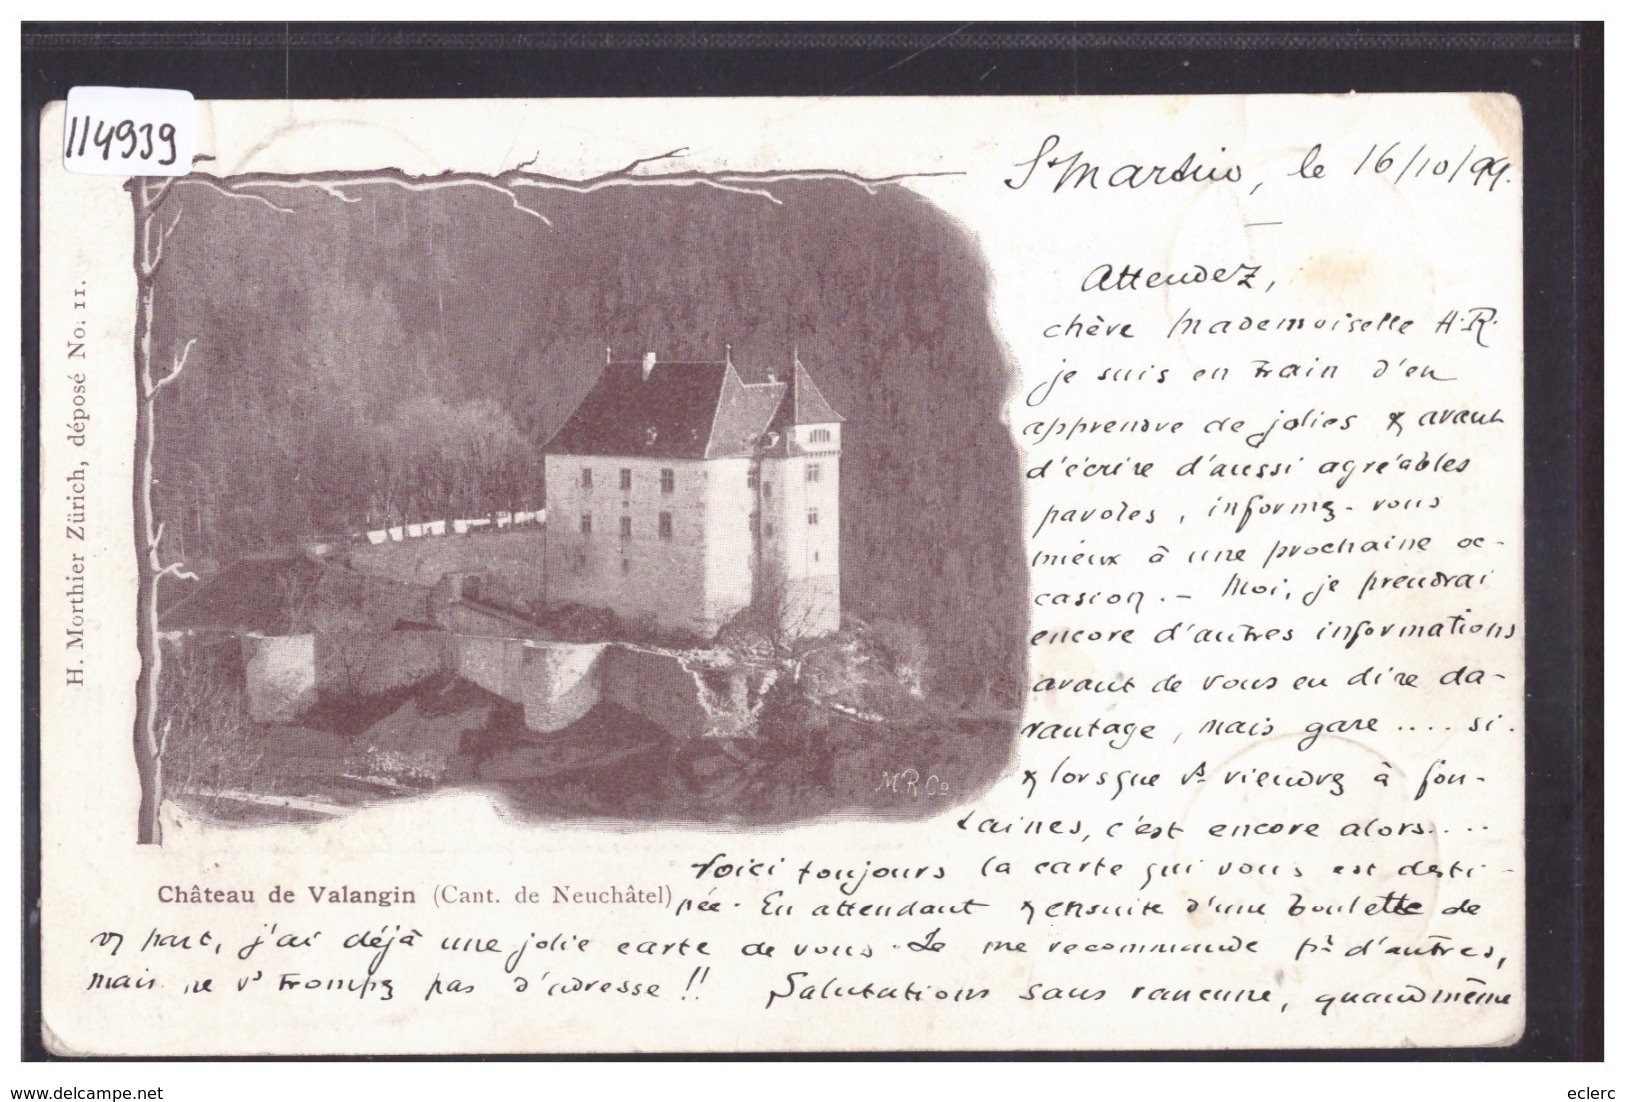 114939
St Martin, le 16/10/99.
Attendez,
chère Mademoiselle H.R.
je suis en train d'en
apprendre de jolies & avant
d'écrire d'aussi agréables
paroles, informez-vous
mieux à une prochaine oc-
casion. – Moi, je prendrai
encore d'autres informations
avant de vous en dire da-
vantage, mais gare .... si.
& lorsque vs viendrez à Fon-
taines, c'est encore alors....
Voici toujours la carte qui vous est desti-
née. En attendant & ensuite d'une boulette de
m part, j'ai déjà une jolie carte de vous. Je me recommande pr d'autres,
mais ne vs trompez pas d'adresse !! Salutations sans rancune, quand même
H. Morthier Zürich, déposé No: 11.
M.R.Co
Château de Valangin (Cant. de Neuchâtel)
www.delcampe.net
eclerc